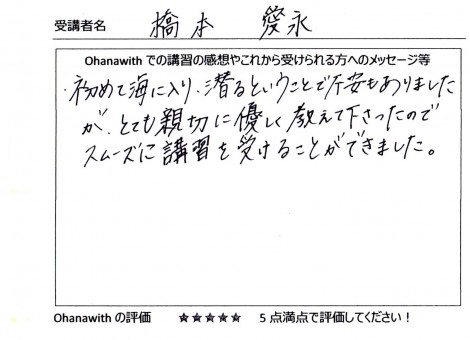 受講者名 橋本 愛永
Ohanawith での講習の感想やこれから受けられる方へのメッセージ等
・初めて海に入り、潜るということで不安もありました
が、とても親切に優しく教えて下さったので
スムーズに講習を受けることができました。
Ohanawith の評価 ★★★★★ 5 点満点で評価してください！